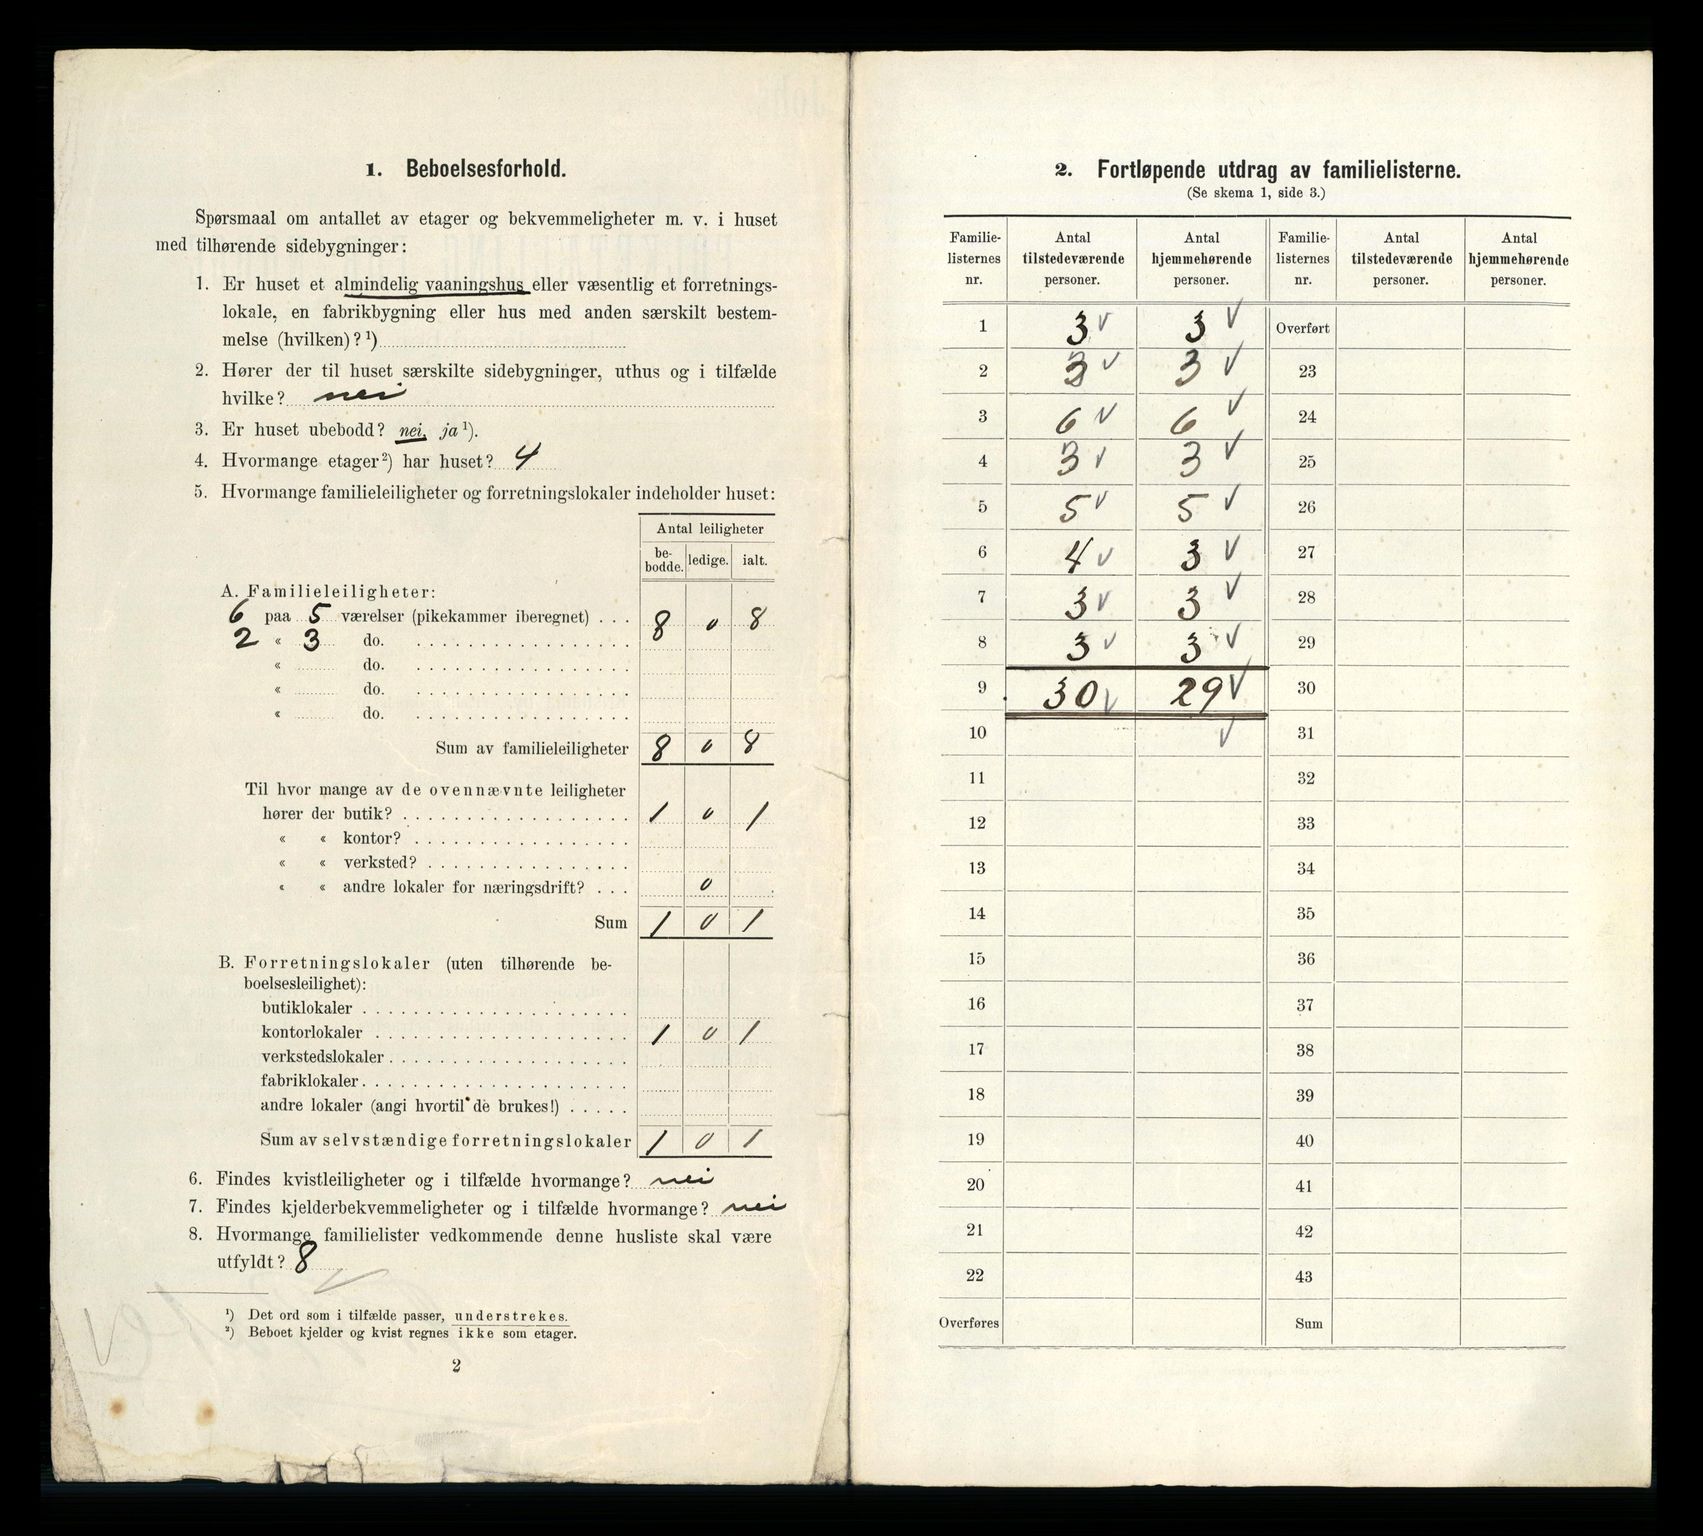 1. Beboelsesforhold.
Spørsmaal om antallet av etager og bekvemmeligheter m. v. i huset
med tilhørende sidebygninger:
1. Er huset et almindelig vaaningshus eller væsentlig et forretnings-
lokale, en fabrikbygning eller hus med anden særskilt bestem-
melse (hvilken)? ¹)
2. Hører der til huset særskilte sidebygninger, uthus og i tilfælde
hvilke? nei
3. Er huset ubebodd? nei, ja ¹).
4. Hvormange etager ²) har huset? 4
5. Hvormange familieleiligheter og forretningslokaler indeholder huset:
Antal leiligheter
be-bodde. ledige. ialt.
A. Familieleiligheter:
6 paa 5 værelser (pikekammer iberegnet) . . . 8 0 8
2 « 3 do.
« do.
« do.
« do.
Sum av familieleiligheter 8 0 8
Til hvor mange av de ovennævnte leiligheter
hører der butik? 1 0 1
« « kontor?
« « verksted?
« « andre lokaler for næringsdrift? . . . 0
Sum 1 0 1
B. Forretningslokaler (uten tilhørende be-
boelsesleilighet):
butiklokaler
kontorlokaler 1 0 1
verkstedslokaler
fabriklokaler
andre lokaler (angi hvortil de brukes!)
Sum av selvstændige forretningslokaler 1 0 1
6. Findes kvistleiligheter og i tilfælde hvormange? nei
7. Findes kjelderbekvemmeligheter og i tilfælde hvormange? nei
8. Hvormange familielister vedkommende denne husliste skal være
utfyldt? 8
¹) Det ord som i tilfælde passer, understrekes.
²) Beboet kjelder og kvist regnes ikke som etager.
2
2. Fortløpende utdrag av familielisterne.
(Se skema 1, side 3.)
Familie-listernes nr. Antal tilstedeværende personer. Antal hjemmehørende personer. Familie-listernes nr. Antal tilstedeværende personer. Antal hjemmehørende personer.
1 3 √ 3 √ Overført
2 3 √ 3 √ 23
3 6 √ 6 √ 24
4 3 √ 3 √ 25
5 5 √ 5 √ 26
6 4 √ 3 √ 27
7 3 √ 3 √ 28
8 3 √ 3 √ 29
9 30 √ 29 √ 30
10 √ 31
11 32
12 33
13 34
14 35
15 36
16 37
17 38
18 39
19 40
20 41
21 42
22 43
Overføres Sum